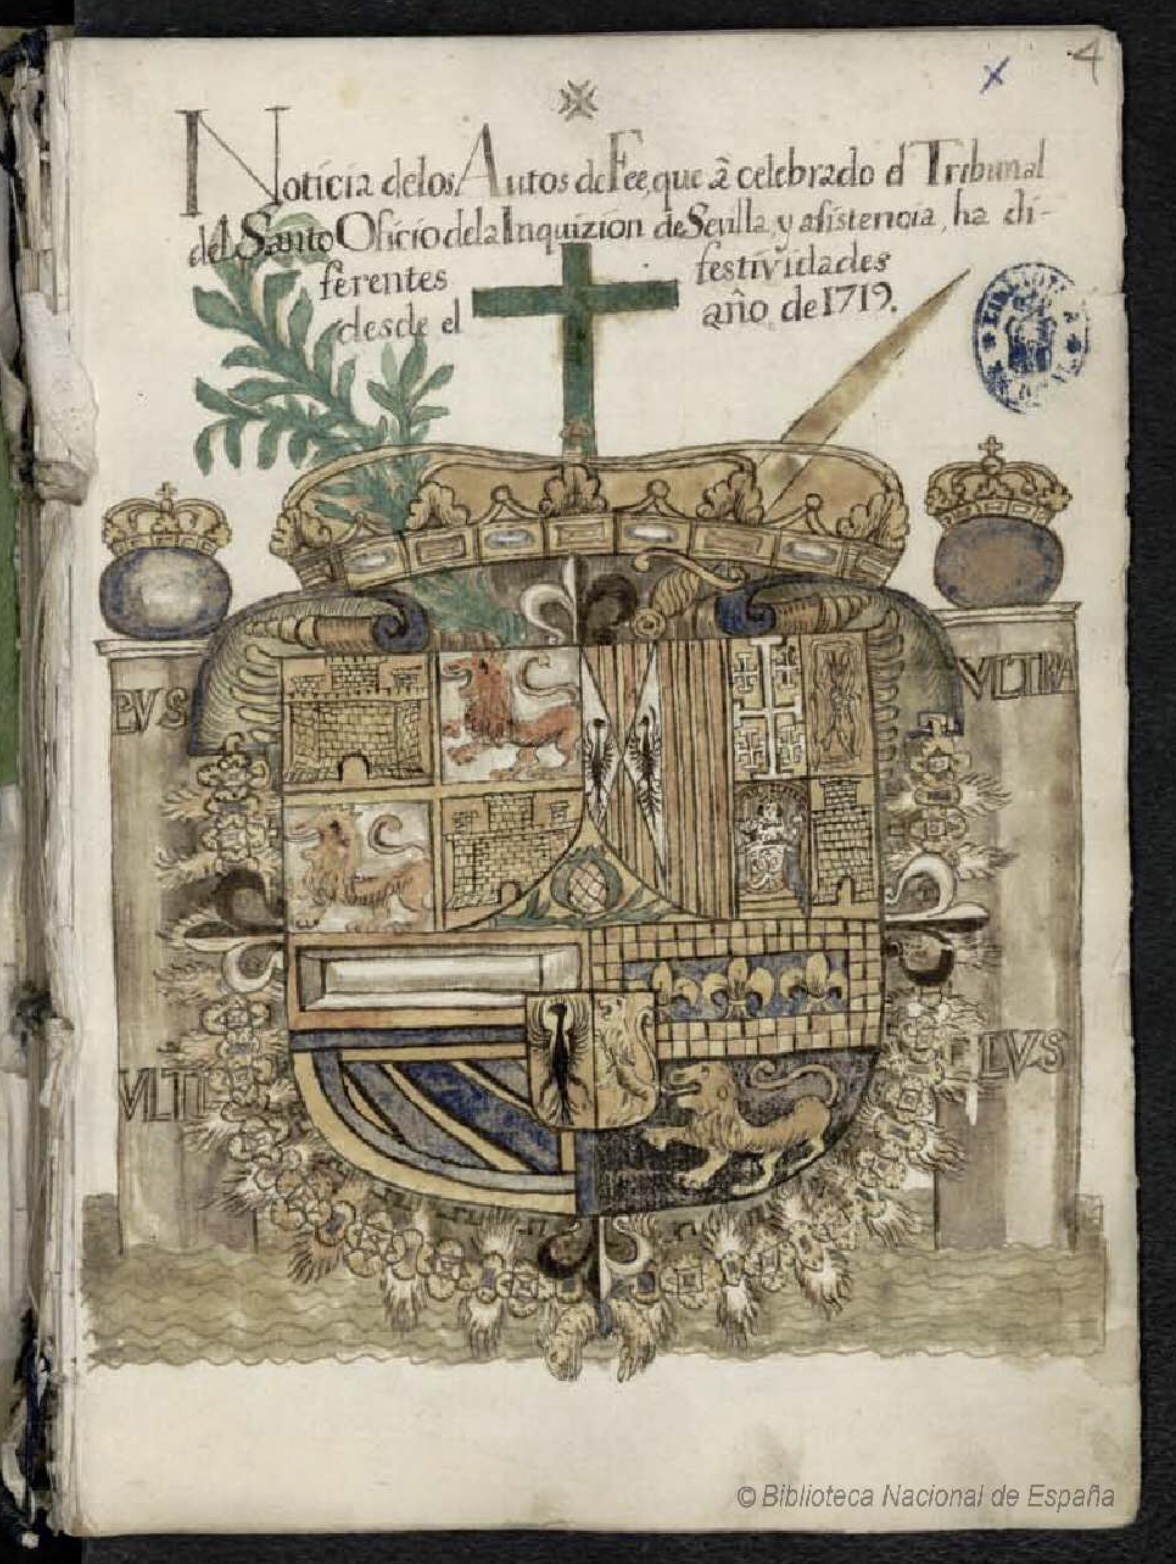 4
x
Noticia de los Autos de Fee, que â celebrado el Tribunal
del Santo Oficio de la Inquizion de Sevilla, y asistencia, ha di-
ferentes festividades
desde el año, de 1719.
PVS
VLTRA
VLTI
LVS
© Biblioteca Nacional de España